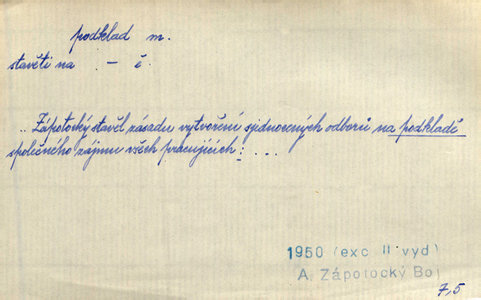 podklad m.
stavěti na . – ě.
.. Zápotocký stavěl zásadu vytvoření sjednocených odborů na podkladě
společného zájmu všech pracujících: . . .
1950 (exc II vyd)
A. Zápotocký Boj
7,5